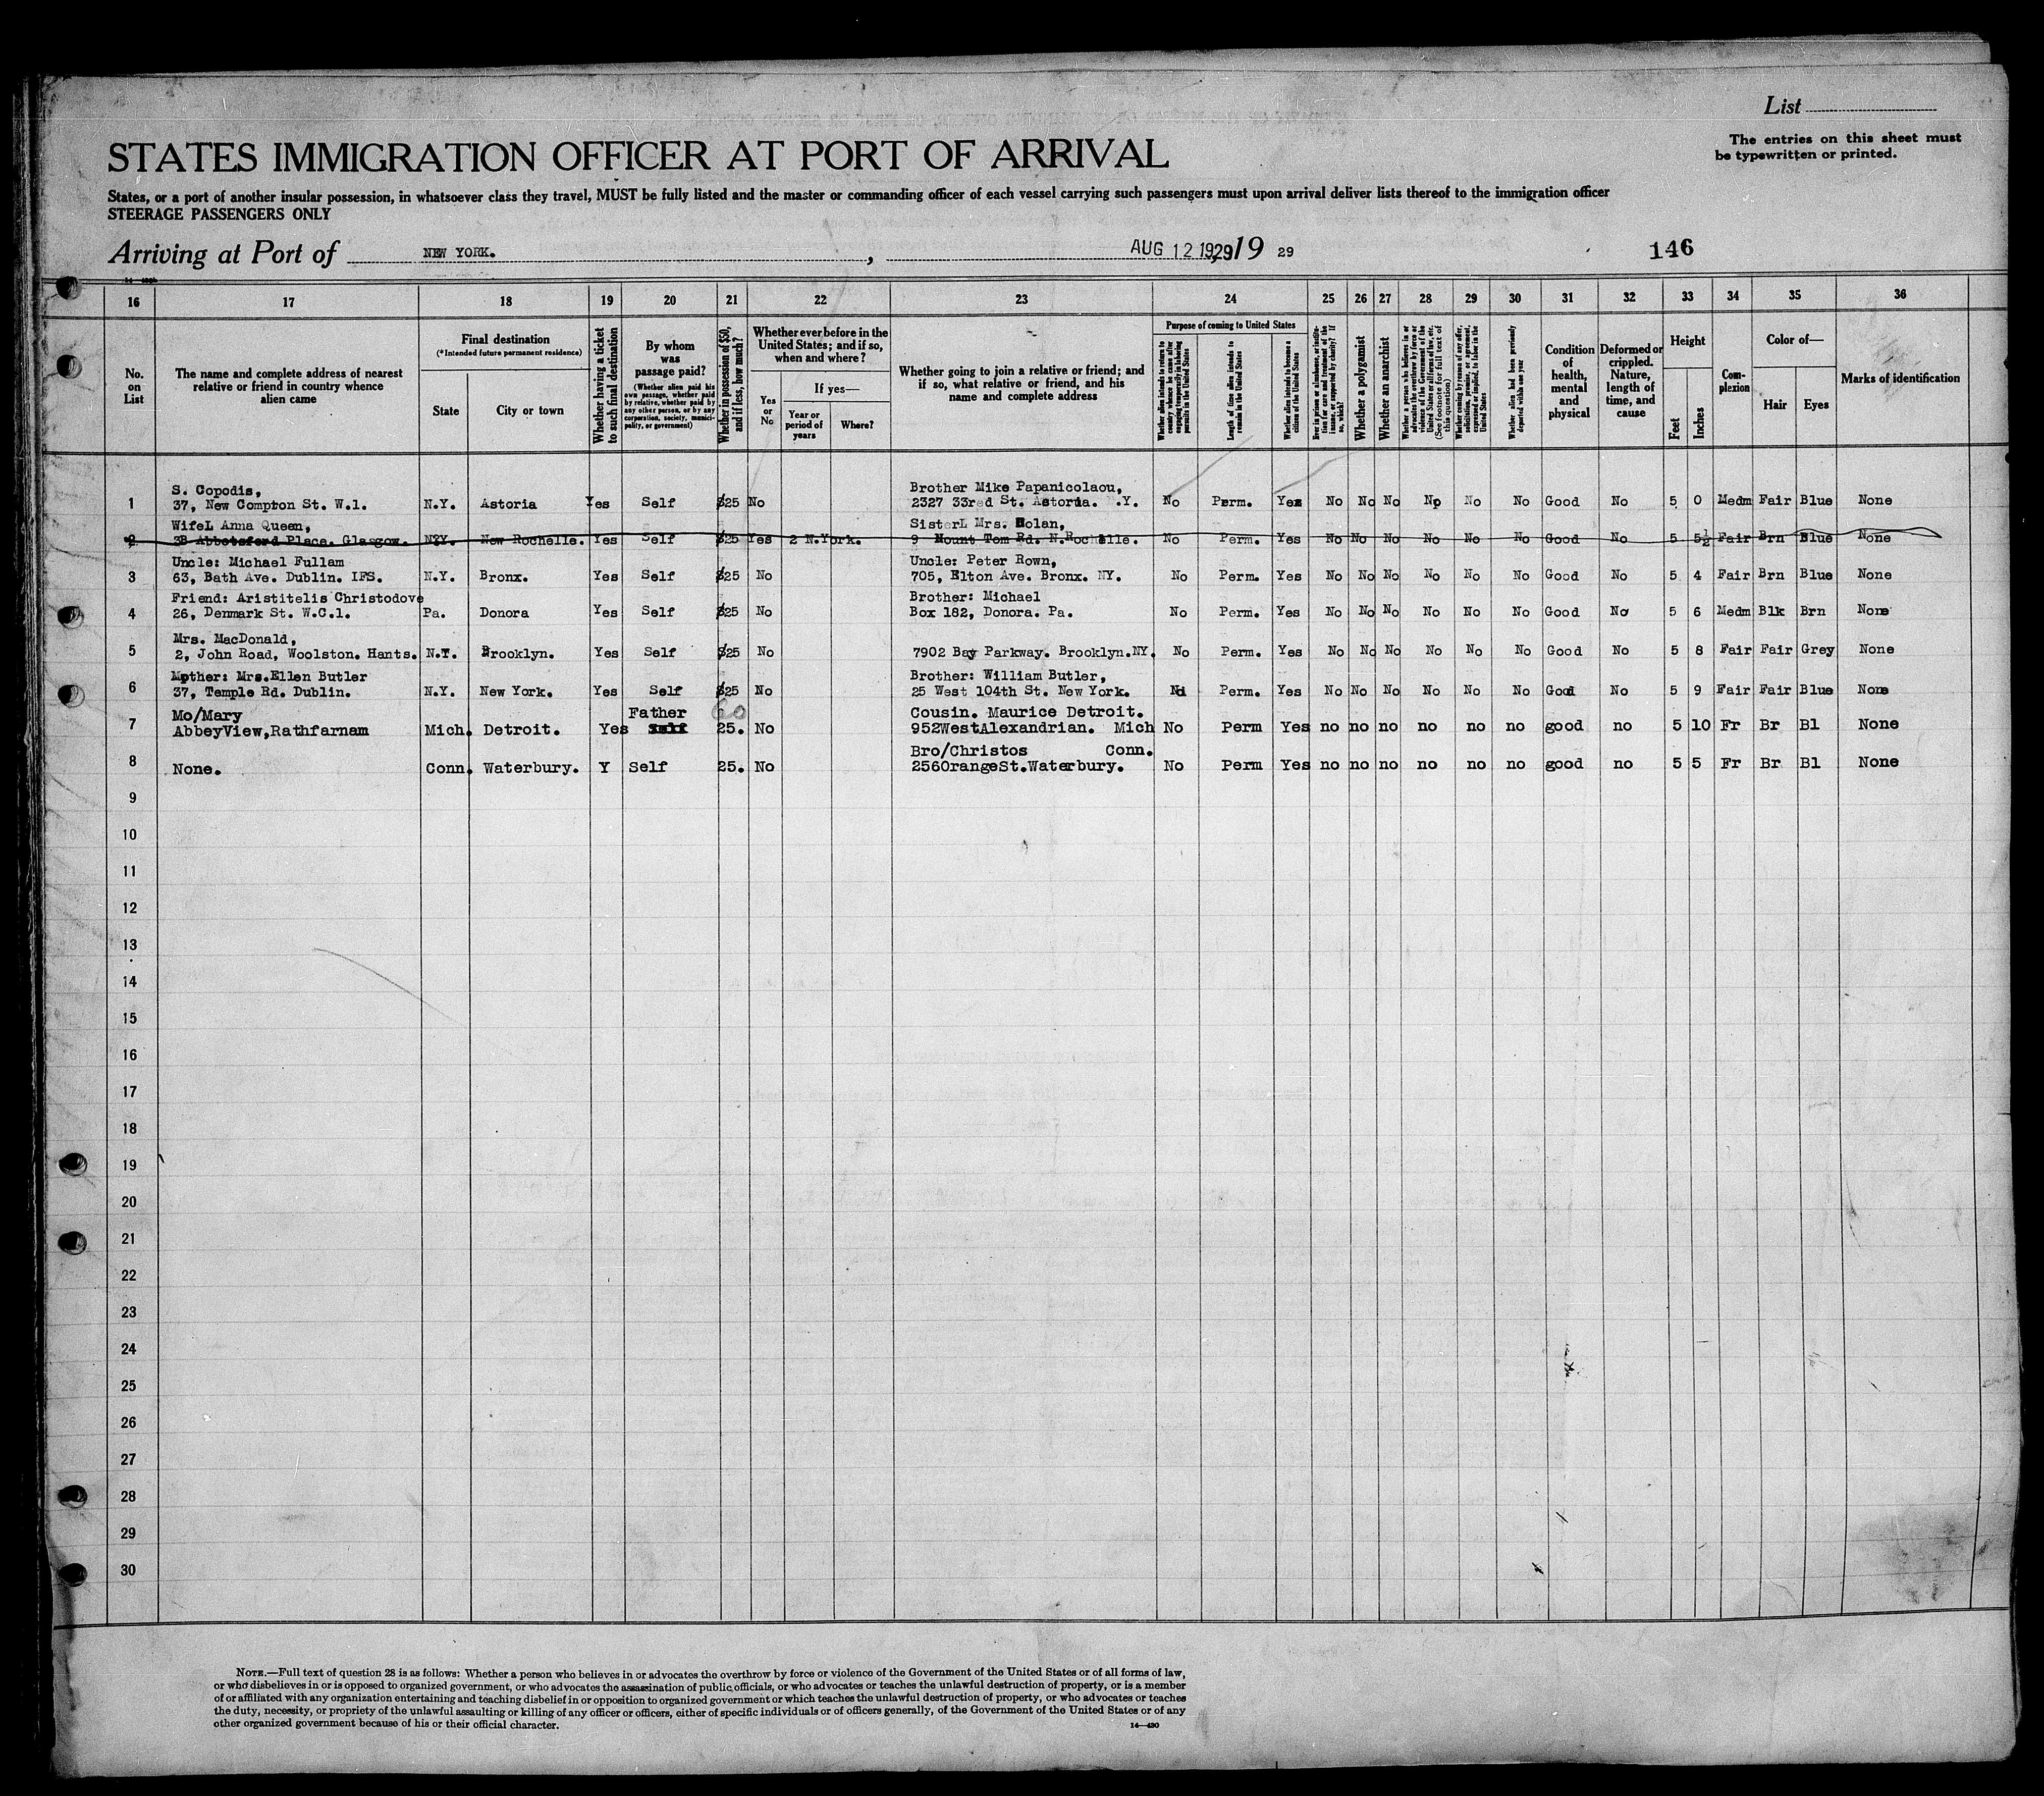 List
The entries on this sheet must
be typewritten or printed.
STATES IMMIGRATION OFFICER AT PORT OF ARRIVAL
States, or a port of another insular possession, in whatsoever class they travel, MUST be fully listed and the master or commanding officer of each vessel carrying such passengers must upon arrival deliver lists thereof to the immigration officer
STEERAGE PASSENGERS ONLY
Arriving at Port of NEW YORK. , AUG 12 1929 , 19 29 146
16 17 18 19 20 21 22 23 24 25 26 27 28 29 30 31 32 33 34 35 36
No. on List
The name and complete address of nearest relative or friend in country whence alien came
Final destination
(*Intended future permanent residence)
State
City or town
Whether having a ticket to such final destination
By whom was passage paid?
(Whether alien paid his own passage, whether paid by relative, whether paid by any other person, or by any corporation, society, municipality, or government)
Whether in possession of $50, and if less, how much?
Whether ever before in the United States; and if so, when and where?
Yes or No
If yes—
Year or period of years
Where?
Whether going to join a relative or friend; and if so, what relative or friend, and his name and complete address
Purpose of coming to United States
Length of time alien intends to remain in the United States
Whether alien intends to become a citizen of the United States
Whether a polygamist
Whether an anarchist
Condition of health, mental and physical
Deformed or crippled. Nature, length of time, and cause
Height
Feet
Inches
Complexion
Color of—
Hair
Eyes
Marks of identification
S. Copodis, Brother Mike Papanicolaou,
1 37, New Compton St. W.1. N.Y. Astoria Yes Self $25 No 2327 33red St. Astoria. .Y. No Perm. Yes No No No No No No Good No 5 0 Medm Fair Blue None
WifeL Anna Queen, SisterL Mrs. Holan,
2 38 Abbotsford Place. Glasgow. N.Y. New Rochelle. Yes Self $25 Yes 2 N.York. 9 Mount Tom Rd. N.Rochelle. No Perm. Yes No No No No No No Good No 5 5½ Fair Brn Blue None
Uncle: Michael Fullam Uncle: Peter Rown,
3 63, Bath Ave. Dublin. IFS. N.Y. Bronx. Yes Self $25 No 705, Elton Ave. Bronx. NY. No Perm. Yes No No No No No No Good No 5 4 Fair Brn Blue None
Friend: Aristitelis Christodove Brother: Michael
4 26, Denmark St. W.C.1. Pa. Donora Yes Self $25 No Box 182, Donora. Pa. No Perm. Yes No No No No No No Good No 5 6 Medm Blk Brn None
Mrs. MacDonald,
5 2, John Road, Woolston. Hants. N.Y. Brooklyn. Yes Self $25 No 7902 Bay Parkway. Brooklyn.NY. No Perm. Yes No No No No No No Good No 5 8 Fair Fair Grey None
Mother: Mrs.Ellen Butler Brother: William Butler,
6 37, Temple Rd. Dublin. N.Y. New York. Yes Self $25 No 25 West 104th St. New York. No Perm. Yes No No No No No No Good No 5 9 Fair Fair Blue None
Mo/Mary Father 60 Cousin. Maurice Detroit.
7 AbbeyView,Rathfarnam Mich. Detroit. Yes Self 25. No 952WestAlexandrian. Mich No Perm Yes no no no no no no good no 5 10 Fr Br Bl None
Bro/Christos Conn.
8 None. Conn. Waterbury. Y Self 25. No 256OrangeSt.Waterbury. No Perm Yes no no no no no no good no 5 5 Fr Br Bl None
9
10
11
12
13
14
15
16
17
18
19
20
21
22
23
24
25
26
27
28
29
30
NOTE.—Full text of question 28 is as follows: Whether a person who believes in or advocates the overthrow by force or violence of the Government of the United States or of all forms of law,
or who disbelieves in or is opposed to organized government, or who advocates the assassination of public officials, or who advocates or teaches the unlawful destruction of property, or is a member
of or affiliated with any organization entertaining and teaching disbelief in or opposition to organized government or which teaches the unlawful destruction of property, or who advocates or teaches
the duty, necessity, or propriety of the unlawful assaulting or killing of any officer or officers, either of specific individuals or of officers generally, of the Government of the United States or of any
other organized government because of his or their official character.
14—430